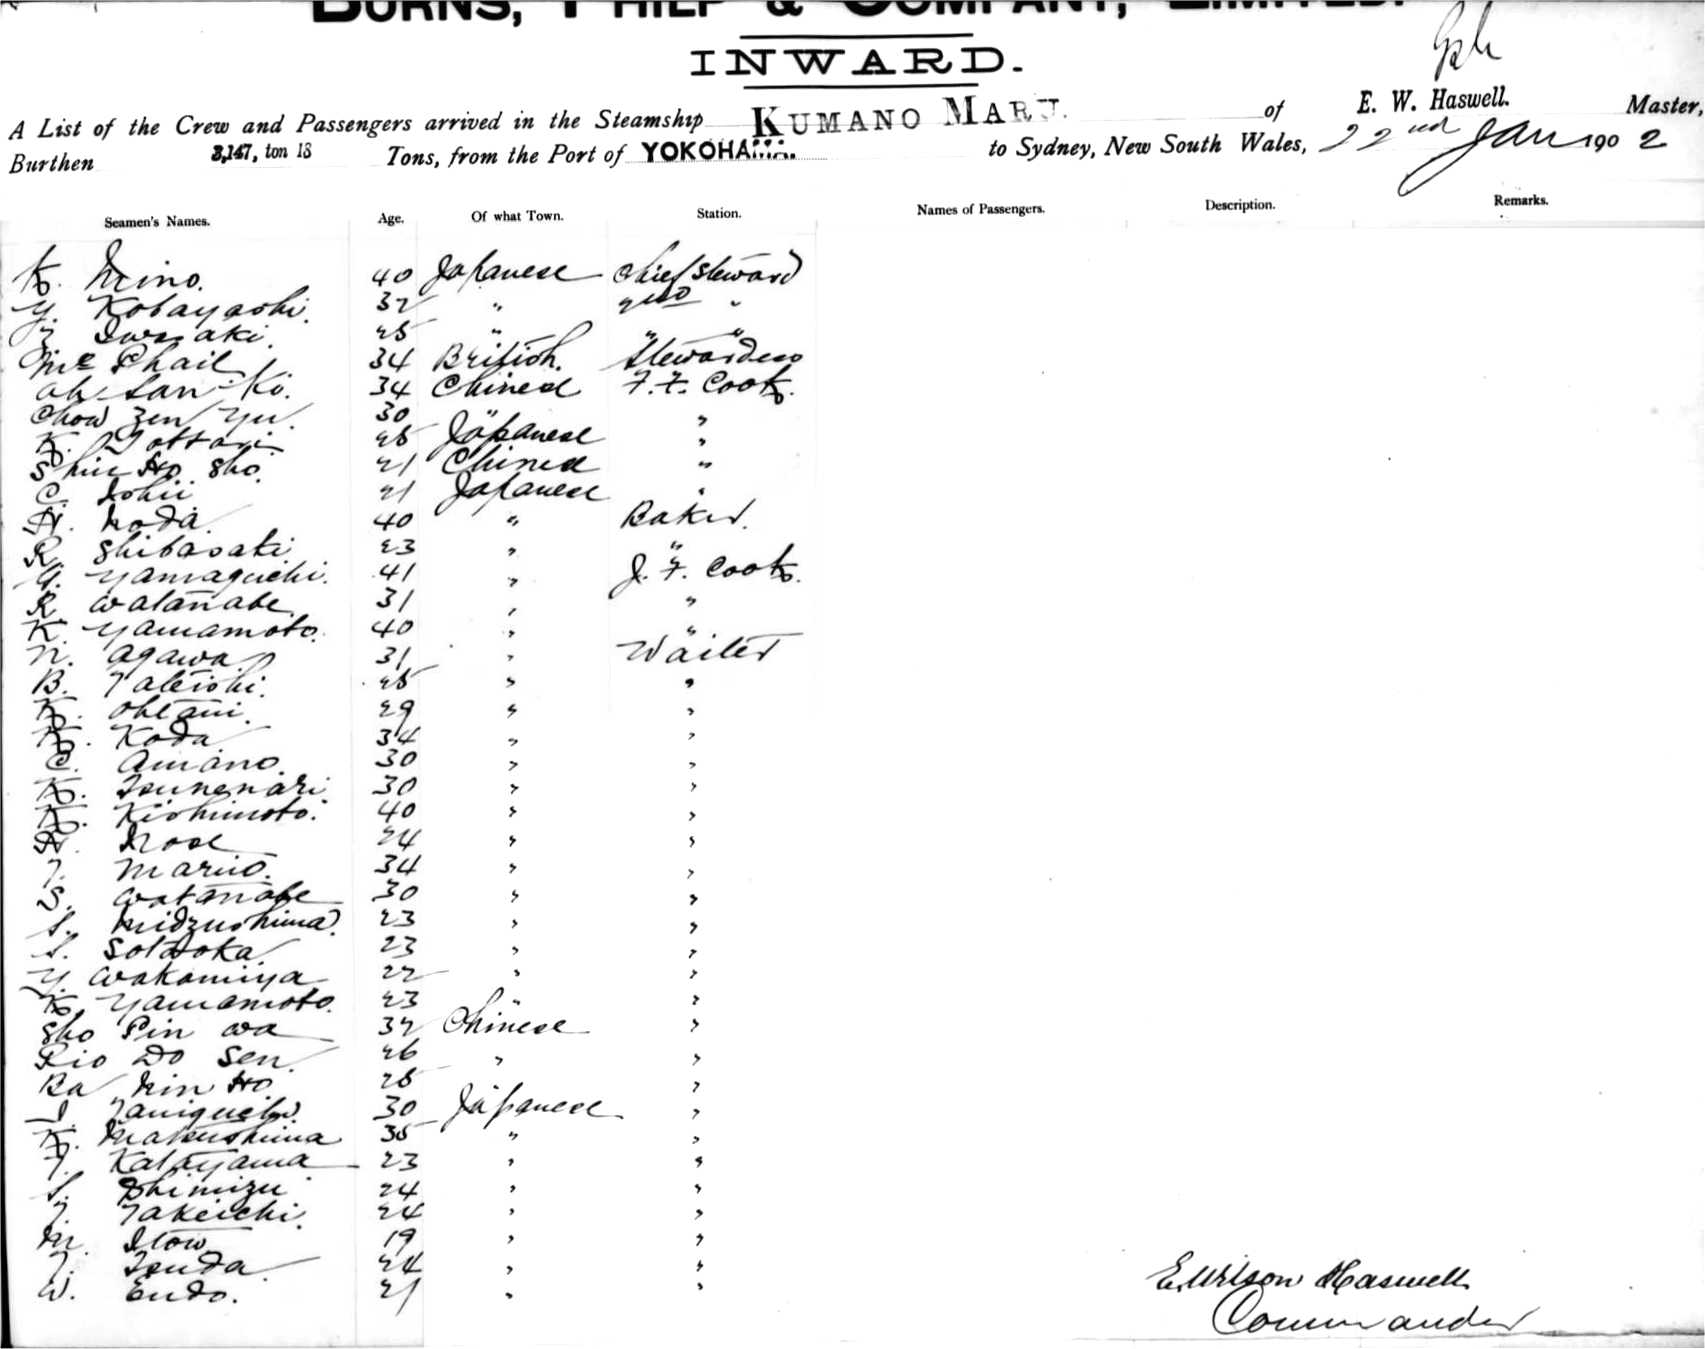 BURNS, PHILP & COMPANY, LIMITED.
INWARD.
A List of the Crew and Passengers arrived in the Steamship KUMANO MARU. of E. W. Haswell. Master,
Burthen 3,147, ton 13 Tons, from the Port of YOKOHAMA. to Sydney, New South Wales, 22nd Jan 1902
Seamen's Names. Age. Of what Town. Station. Names of Passengers. Description. Remarks.
K. Mino. 40 Japanese Chief Steward
Y. Kobayashi. 32 " 2nd "
Iwasaki. 25 " " "
Mc Phail 34 British. Stewardess
Ah San Ko. 34 Chinese F. F. Cook.
Chow Zen Yu. 30 " "
K. Tottori 25 Japanese "
Shiu Ho Sho. 21 Chinese "
C. Ishii 21 Japanese "
H. Noda. 40 " Baker.
R. Shibasaki 23 " "
G. Yamaguchi. 41 " J. F. Cook.
R. Watanabe 31 " "
K. Yamamoto. 40 " "
N. Agawa 31 " Waiter
B. Tateishi. 25 " "
K. Ohtani. 29 " "
K. Koda 34 " "
C. Amano. 30 " "
K. Tsunenari 30 " "
K. Kishimoto. 40 " "
H. Nose 24 " "
T. Maruo. 34 " "
S. Watanabe 30 " "
S. Midzushima. 23 " "
S. Sotooka. 23 " "
Y. Wakamiya 22 " "
K. Yamamoto. 23 " "
Sho Pin Wa 32 Chinese "
Rio Do Sen. 26 " "
Ba Nin Ho 25 "
I. Taniguchi. 30 Japanese "
K. Matsushima 35 " "
T. Katayama 23 " "
S. Shimizu 24 " "
T. Takeichi. 24 " "
M. Itow 19 " "
T. Tsuda. 24 " "
W. Endo. 21 " "
E. Wilson Haswell
Commander